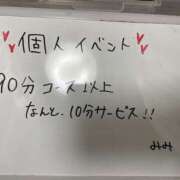 個人イベント
90分コース以上
なんと、10分サービス!!
みみ